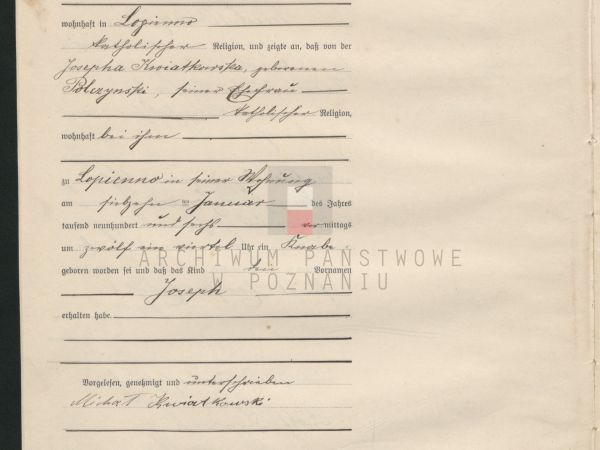 wohnhaft in Lopienno
katholischer Religion, und zeigte an, daß von der
Josepha Kwiatkowska, geborenen
Polczynski, seiner Ehefrau
katholischer Religion,
wohnhaft bei ihm
zu Lopienno in seiner Wohnung
am siebzehn ten Januar des Jahres
tausend neunhundert und sechs vor mittags
um zwölf ein viertel Uhr ein Knabe
geboren worden sei und daß das Kind den Vornamen
Joseph
erhalten habe.
Vorgelesen, genehmigt und unterschrieben
Michał Kwiatkowski
ARCHIWUM PAŃSTWOWE
W POZNANIU